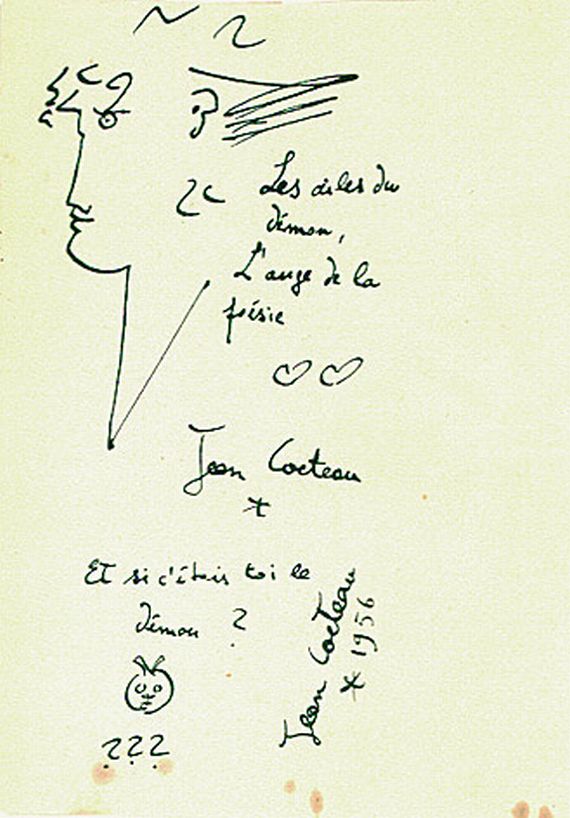 Les ailes du
démon,
L'ange de la
poésie
Jean Cocteau
Et si c'étais toi le
démon ?
Jean Cocteau
* 1956
???